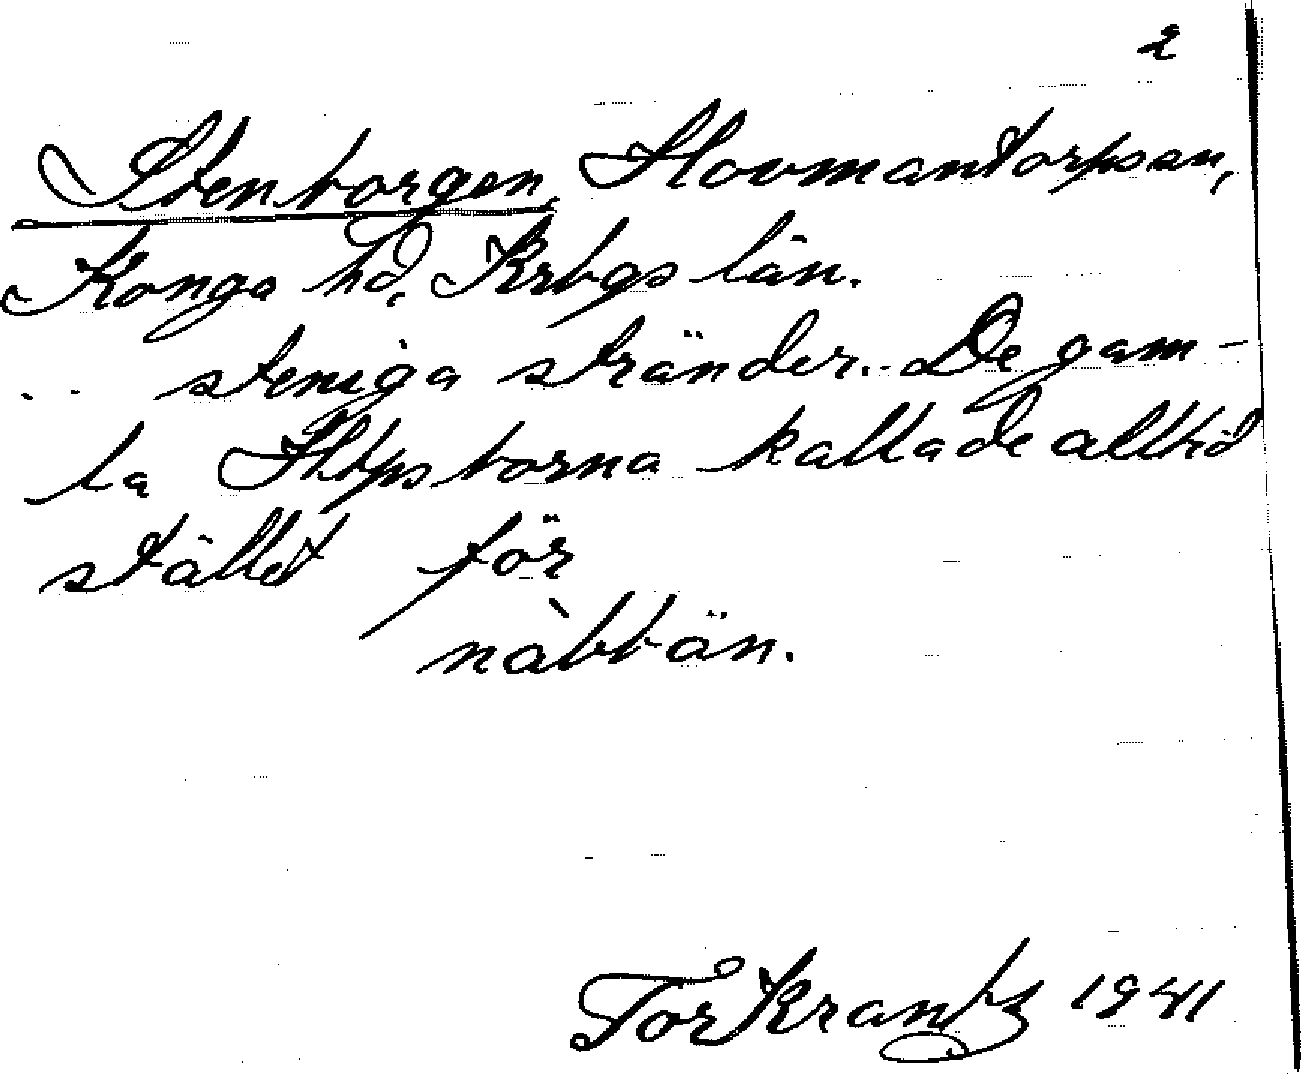 2
Stenborgen, Hovmantorps sn,
Konga hd, Krbgs län.
steniga stränder. De gam-
la Htpsborna kallade alltid
stället för
nàbbän.
Tor Krantz 1941